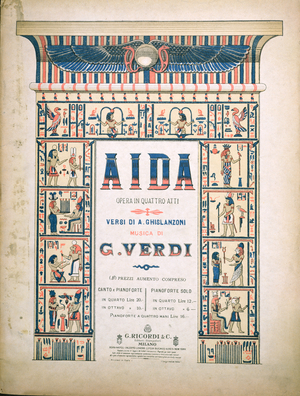 AIDA
OPERA IN QUATTRO ATTI
VERSI DI A. GHISLANZONI
MUSICA DI
G. VERDI
(I PREZZI AUMENTO COMPRESO)
CANTO E PIANOFORTE
PIANOFORTE SOLO
IN QUARTO LIRE
IN QUARTO LIRE 12
IN OTTAVO
IN OTTAVO
PIANOFORTE A QUATTRO MANI LIRE
G. RICORDI & C.
MILANO